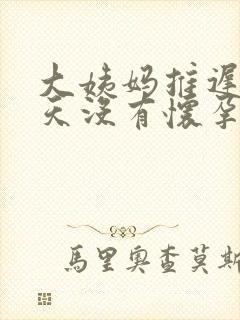 大姨妈推迟
天没有怀孕
馬里奧查莫斯